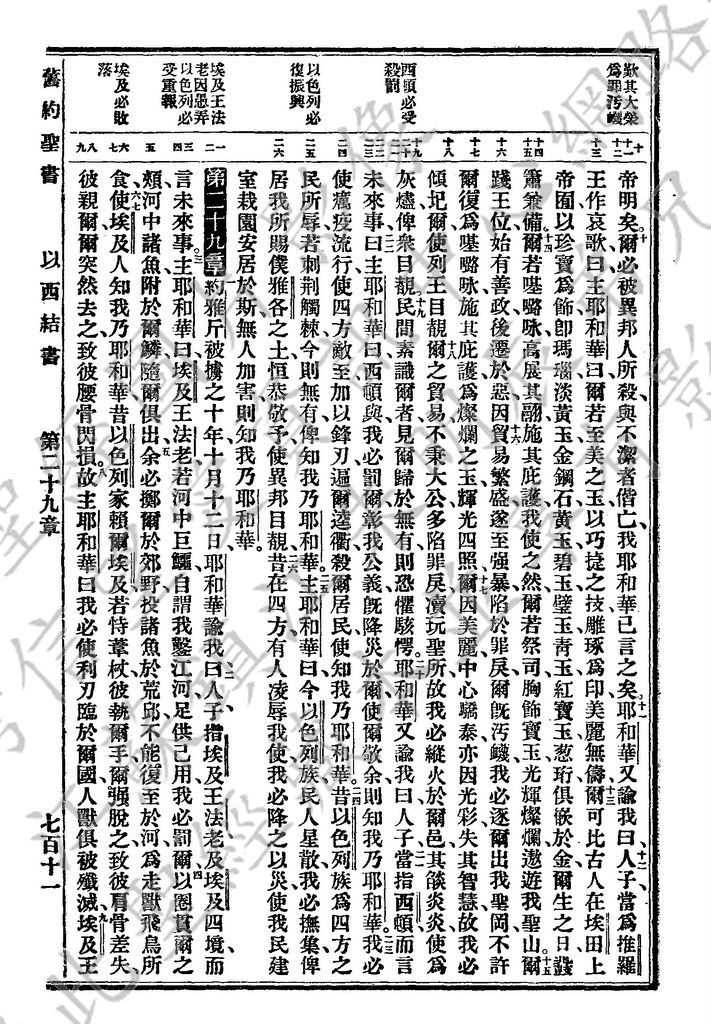 歎其大榮
爲罪污衊
西頓必受
殺罰
以色列必
復振興
埃及王法
老因愚弄
以色列必
受重報
埃及必敗
落
十
十一
十二
十三
十四
十五
十六
十七
十八
十九
二十
二一
二二
二三
二四
二五
二六
一
二
三
四
五
六
七
八
九
帝明矣爾必被異邦人所殺與不潔者偕亡我耶和華已言之矣耶和華又諭我曰人子當爲推羅
王作哀歌曰主耶和華曰爾若至美之玉以巧捷之技雕琢爲印美麗無儔爾可比古人在埃田上
帝囿以珍寶爲飾卽瑪瑙淡黃玉金鋼石黃玉碧玉璧玉靑玉紅寶玉葱珩俱嵌於金爾生之日
簫兼備爾若𠼻咏高展其翮施其庇護我使之然爾若祭司胸飾寶玉光輝燦爛遨遊我聖山爾
踐王位始有善政後遷於惡因貿易繁盛遂至强暴陷於罪戾爾旣污衊我必逐爾出我聖岡不許
爾復爲咏施其庇護爲燦爛之玉輝光四照爾因美麗中心驕泰亦因光彩失其智慧故我必
傾圮爾使列王目覩爾之貿易不秉大公多陷罪戾瀆玩聖所故我必縱火於爾邑其燄炎炎使爲
灰燼俾衆目覩民間素識爾者見爾歸於無有則恐懼駭愕耶和華又諭我曰人子當指西頓而言
未來事曰主耶和華曰西頓與我必罰爾彰我公義旣降災於爾使爾敬余則知我乃耶和華我必
使瘟疫流行使四方敵至加以鋒刃遍爾逵衢殺爾居民使知我乃耶和華昔以色列族爲四方之
民所辱若刺荆觸棘今則無有俾知我乃耶和華主耶和華曰今以色列族民人星散我必撫集俾
居我所賜僕雅各之土恒恭敬予使異邦目覩昔在四方有人凌辱我使我必降之以災使我民建
室栽園安居於斯無人加害則知我乃耶和華
第二十九章約雅斤被擄之十年十月十二日耶和華諭我曰人子指埃及王法老及埃及四境而
言未來事主耶和華曰埃及王法老若河中巨鱷自謂我鑿江河足供己用我必罰爾以圈貫爾之
頰河中諸魚附於爾鱗隨爾俱出余必擲爾於郊野投諸魚於荒邱不能復至於河爲走獸飛鳥所
食使埃及人知我乃耶和華昔以色列家賴爾埃及若恃葦杖彼執爾手爾强脫之致彼肩骨差失
彼親爾爾突然去之致彼腰骨閃損故主耶和華曰我必使利刃臨於爾國人獸俱被殲滅埃及王
舊約聖書　以西結書　第二十九章　七百十一